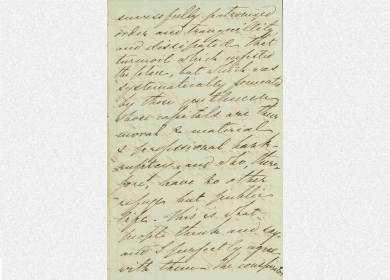 successfully patronized
order and tranquillity
and dissipated that
turmoil which infested
the place, but which was
systematically fomented
by those gentlemen
whose capitals are their
moral & material
& professional bank-
ruptcy, and who, there-
fore, have no other
refuge but public
life. This is what
people think and say
and I perfectly agree
with them. The